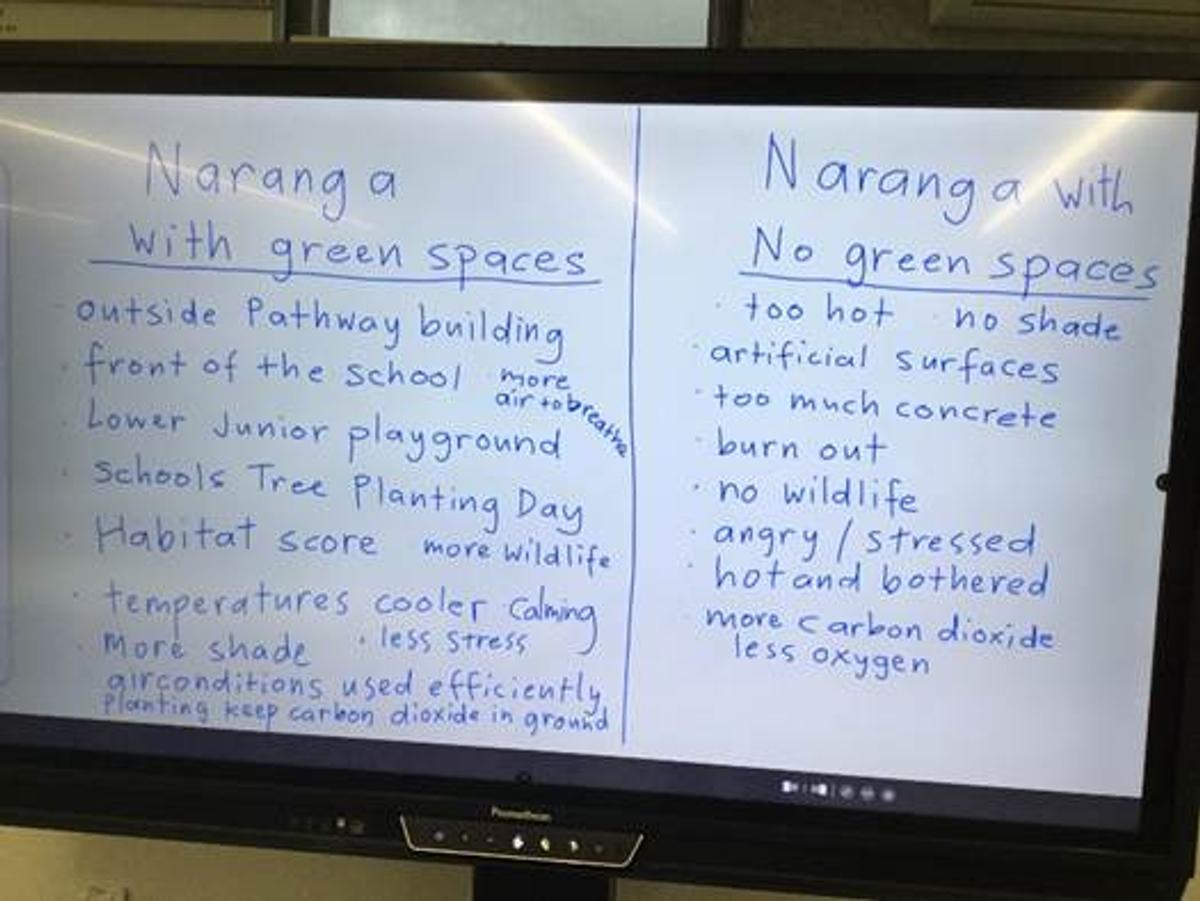 Naranga
with green spaces
· outside Pathway building
· front of the school · more
air to breathe
· Lower Junior playground
· Schools Tree Planting Day
· Habitat score more wildlife
· temperatures cooler Calming
· More shade · less stress
airconditions used efficiently
Planting keep carbon dioxide in ground
Naranga with
No green spaces
· too hot · no shade
· artificial surfaces
· too much concrete
· burn out
· no wildlife
· angry / stressed
· hot and bothered
more carbon dioxide
less oxygen
Promethean